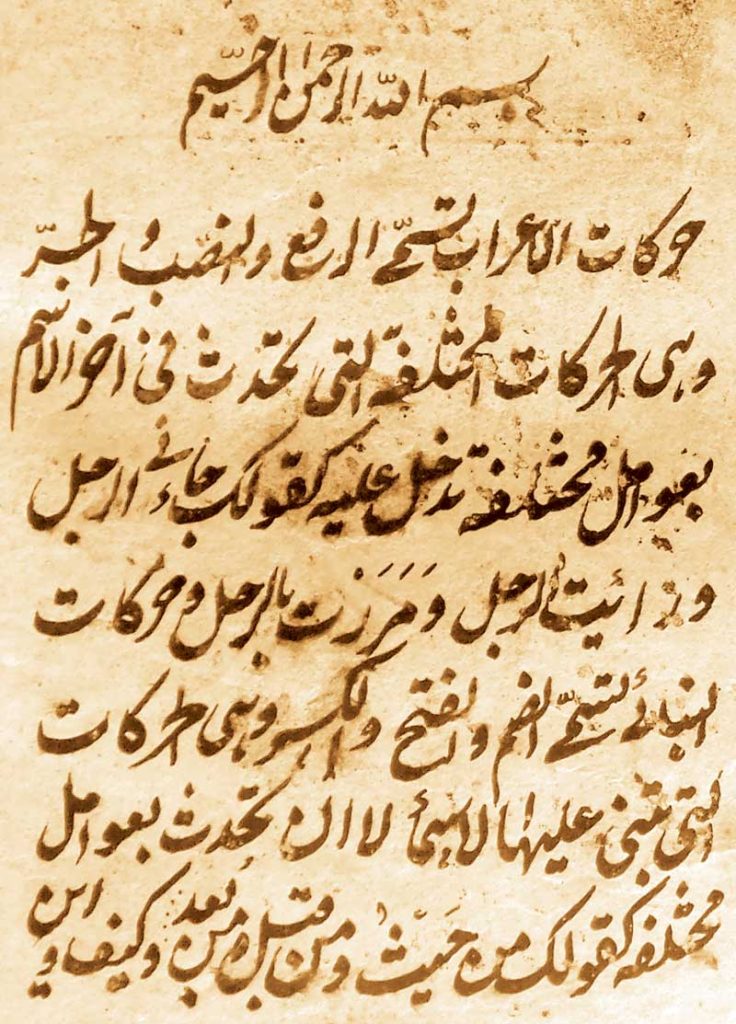 بسم الله الرحمن الرحیم
حرکات الاعراب تسمّے الرفع والنصب و الجرّ
وہی الحرکات المختلفة التی تحدث فی آخر الاسم
بعوامل مختلفة تدخل علیه کقولک جاءنے الرجل
و رائیت الرجل و مَرَرْت بالرجل و حرکات
البنائے تسمّے الضم والفتح والکسر وہی الحرکات
التی تبنی علیها الاسمأ لا ان تحدث بعوامل
مختلفه کقولک من حیث و من قبل و من بعد و کیف و این